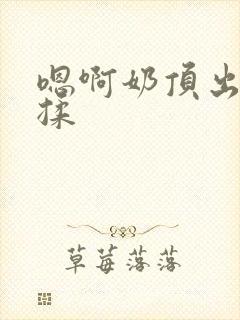 嗯啊奶頂出
揉
草莓落落